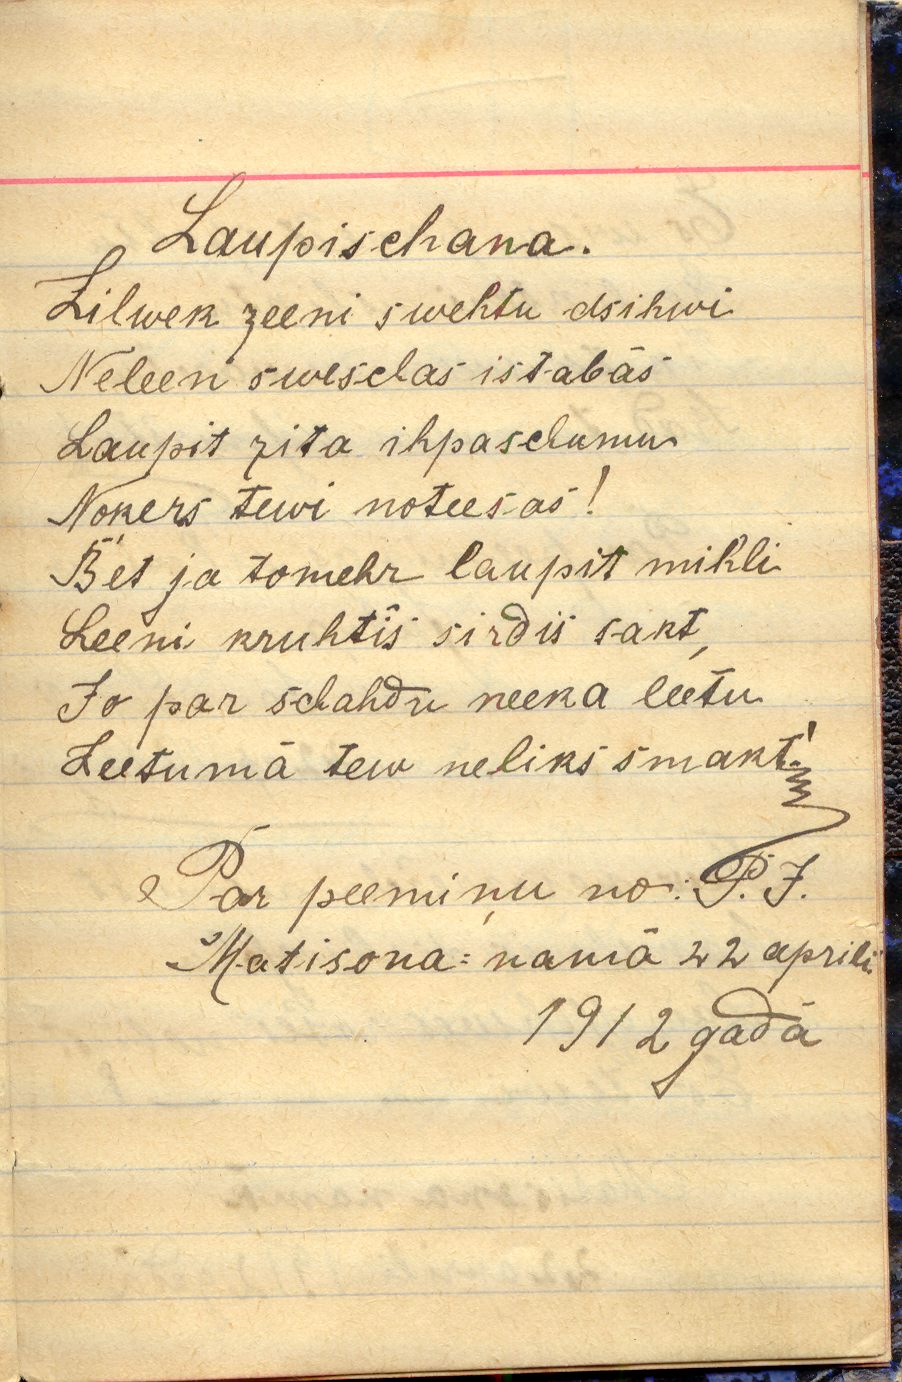 Laupischana.
Zilwek zeeni swehtu dsihwi
Neleen sweschas istabās
Laupit zita ihpaschumu
Nokers tewi noteesas!
Bet ja tomehr laupit mihli
Leeni kruhtis sirdis sakt,
Jo par schahdu neeka leetu
Zeetumā tew neliks smakt!
Par peemiņu no: P. J.
Matisona = namā 22 aprili
1912 gadā